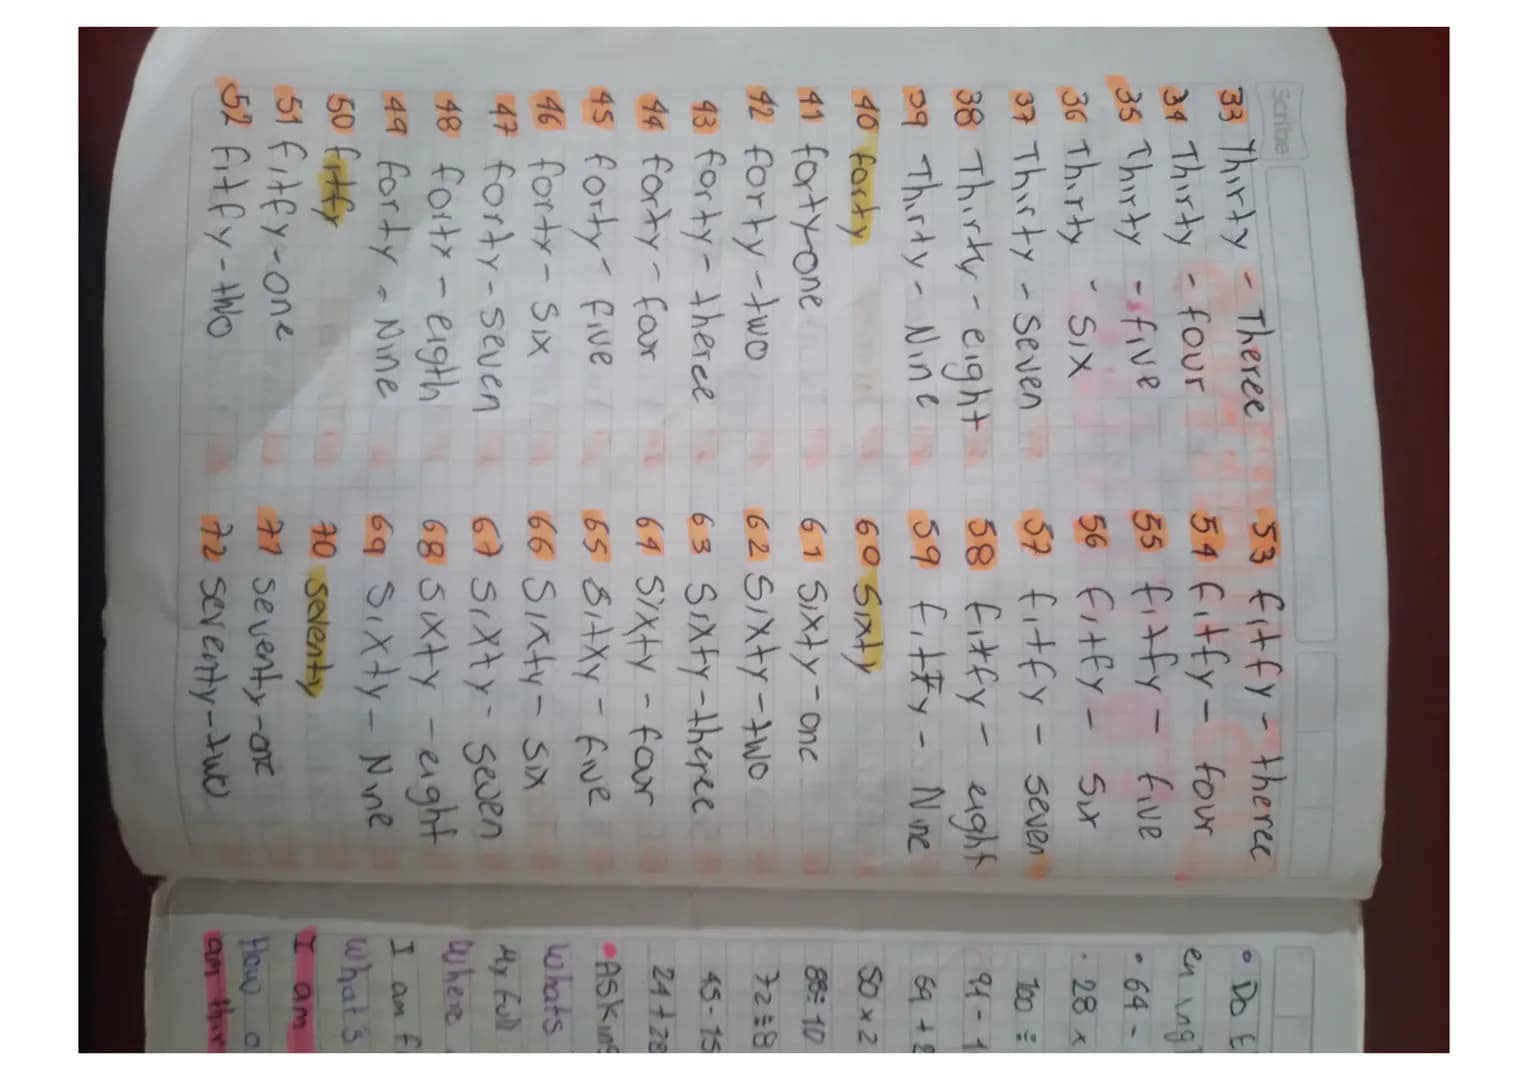 Scribe
33 Thirty - Theree
34 Thirty - four
35 Thirty - five
36 Thirty - Six
37 Thirty - Seven
38 Thirty - eight
39 Thirty - Nine
40 forty
41 forty-one
42 forty-two
43 forty-theree
44 forty - foor
45 forty - five
46 forty - Six
47 forty-seven
48 forty - eigth
49 forty - Nine
50 fitfy
51 fitfy-one
52 fitfy-two
53 fitfy - theree
54 fitfy - four
55 fitfy - five
56 fitfy - Six
57 fitfy - seven
58 fitfy - eight
59 fitfy - Nine
60 Sixty
61 Sixty - one
62 Sixty - two
63 Sixty-theree
64 Sixty - foor
65 Sitxy - five
66 Sixty - six
67 Sixty - seven
68 Sixty - eight
69 Sixty - Nine
70 seventy
71 seventy-one
72 seventy-two
• Do
en ing
• 64 -
• 28 x
100 ÷
94 - 1
69 +
50 x 2
88÷10
72÷8
45-15
24+28
• Asking
Whats
My full
Where
I am f
What's
I am
How
am thir